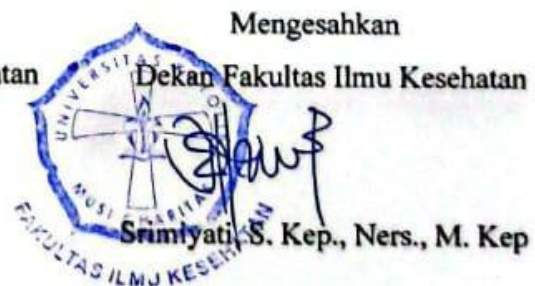 Mengesahkan
Dekan Fakultas Ilmu Kesehatan
UNIVERSITAS
MUSI CHARITAS
FAKULTAS ILMU KESEHATAN
Srimiyati, S. Kep., Ners., M. Kep